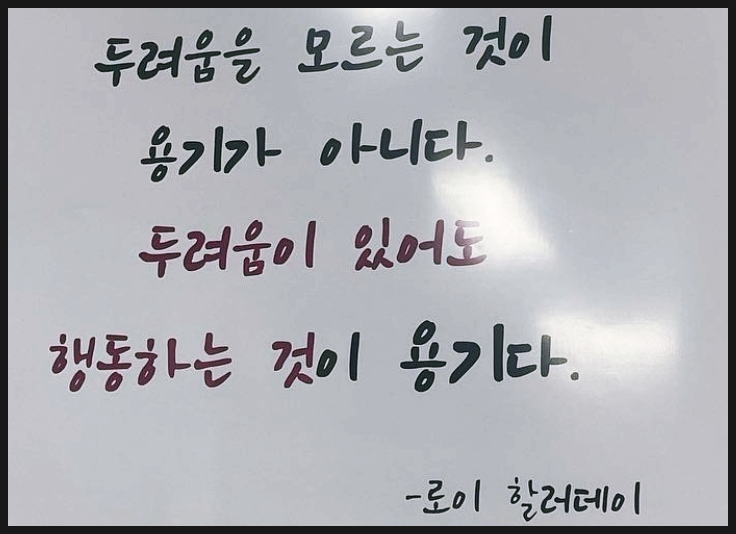 두려움을 모르는 것이
용기가 아니다.
두려움이 있어도
행동하는 것이 용기다.
-로이 할러데이